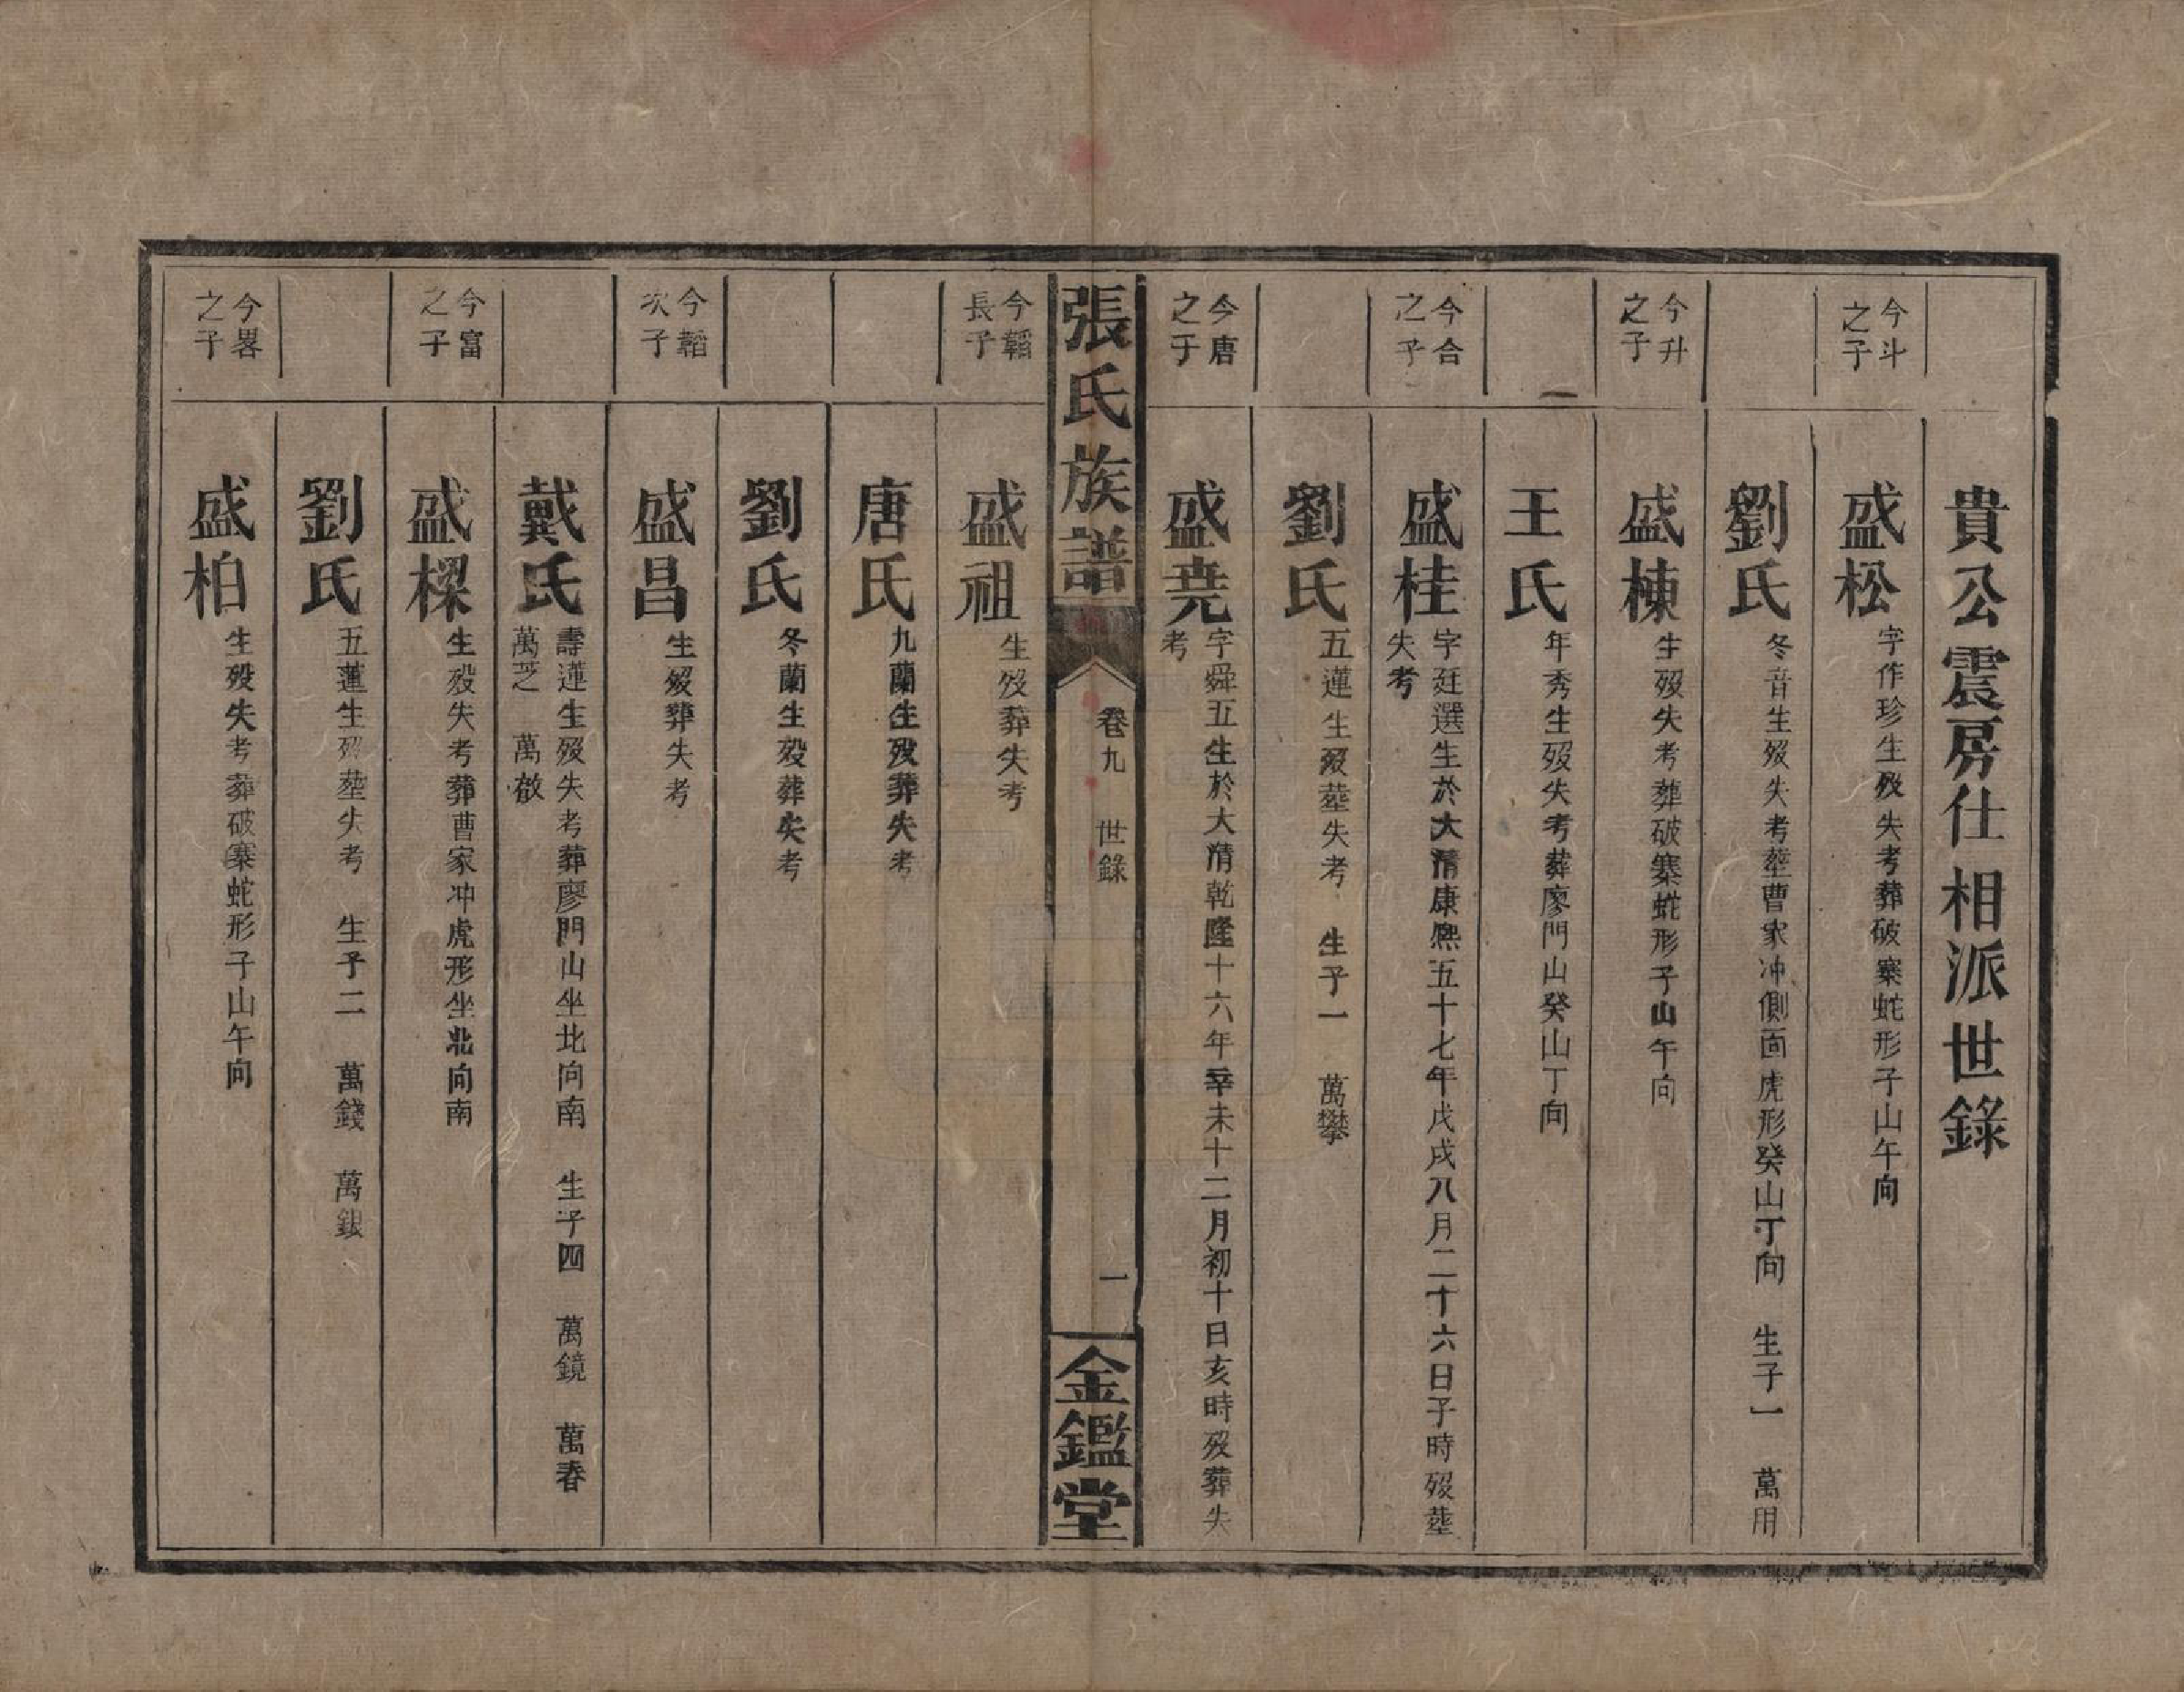 貴公震房仕相派世錄
今斗
之子
盛松
字作珍生歿失考葬破寨蛇形子山午向
劉氏
冬音生歿失考塟曹家冲側面虎形癸山丁向　生子一　萬用
今升
之子
盛棟
生歿失考葬破寨蛇形子山午向
王氏
年秀生歿失考葬廖門山癸山丁向
今合
之子
盛桂
字廷選生於大清康熙五十七年戊戌八月二十六日子時歿塟
失考
劉氏
五蓮生歿塟失考　生子一　萬攀
今唐
之子
盛堯
字舜五生於大清乾隆十六年辛未十二月初十日亥時歿葬失
考
張氏族譜
卷九　世錄
一
金鑑堂
今韜
長子
盛祖
生歿葬失考
唐氏
九蘭生歿葬失考
劉氏
冬蘭生歿葬失考
今韜
次子
盛昌
生歿葬失考
戴氏
壽蓮生歿失考葬廖門山坐北向南　生子四　萬鏡　萬春
萬芝　萬敬
今富
之子
盛樑
生歿失考葬曹家冲虎形坐北向南
劉氏
五蓮生歿塟失考　生子二　萬錢　萬銀
今畧
之子
盛柏
生歿失考葬破寨蛇形子山午向